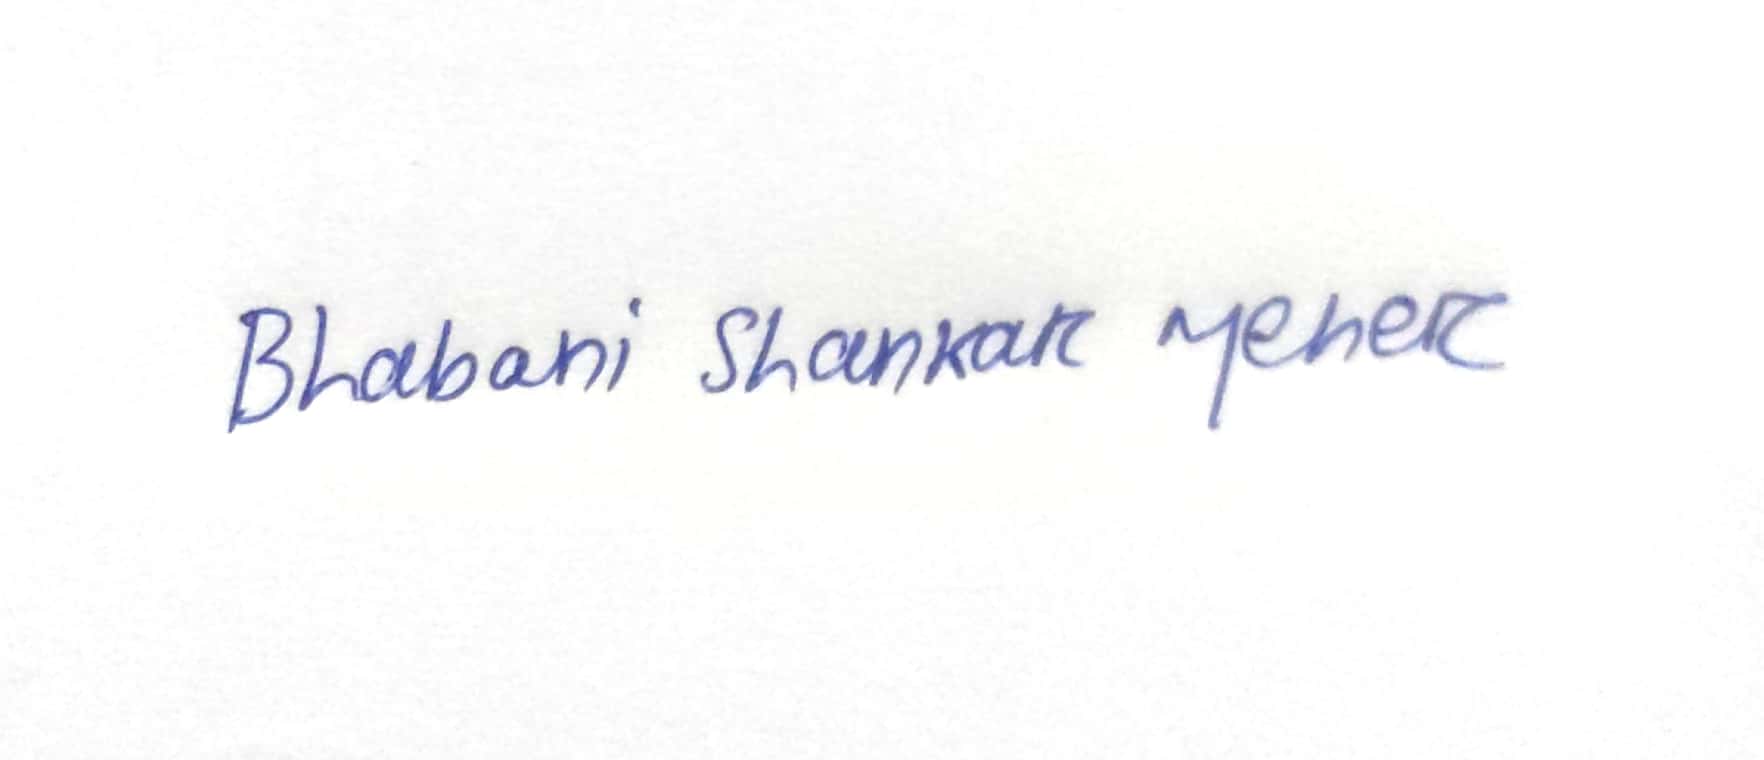 Bhabani Shankar Meher